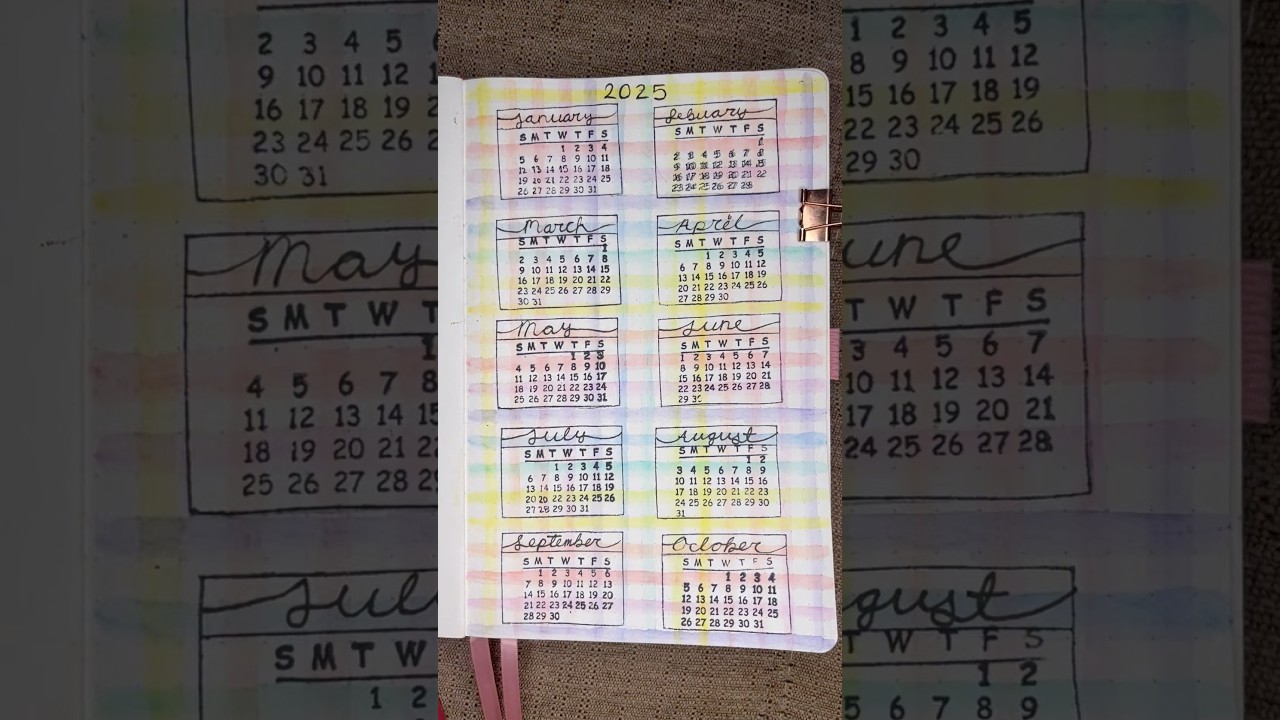 2025
January
S M T W T F S
1 2 3 4
5 6 7 8 9 10 11
12 13 14 15 16 17 18
19 20 21 22 23 24 25
26 27 28 29 30 31
Febuary
S M T W T F S
1
2 3 4 5 6 7 8
9 10 11 12 13 14 15
16 17 18 19 20 21 22
23 24 25 26 27 28
March
S M T W T F S
1
2 3 4 5 6 7 8
9 10 11 12 13 14 15
16 17 18 19 20 21 22
23 24 25 26 27 28 29
30 31
April
S M T W T F S
1 2 3 4 5
6 7 8 9 10 11 12
13 14 15 16 17 18 19
20 21 22 23 24 25 26
27 28 29 30
May
S M T W T F S
1 2 3
4 5 6 7 8 9 10
11 12 13 14 15 16 17
18 19 20 21 22 23 24
25 26 27 28 29 30 31
June
S M T W T F S
1 2 3 4 5 6 7
8 9 10 11 12 13 14
15 16 17 18 19 20 21
22 23 24 25 26 27 28
29
July
S M T W T F S
1 2 3 4 5
6 7 8 9 10 11 12
13 14 15 16 17 18 19
20 21 22 23 24 25 26
27 28 29 30 31
August
S M T W T F S
1 2
3 4 5 6 7 8 9
10 11 12 13 14 15 16
17 18 19 20 21 22 23
24 25 26 27 28 29 30
31
September
S M T W T F S
1 2 3 4 5 6
7 8 9 10 11 12 13
14 15 16 17 18 19 20
21 22 23 24 25 26 27
28 29 30
October
S M T W T F S
1 2 3 4
5 6 7 8 9 10 11
12 13 14 15 16 17 18
19 20 21 22 23 24 25
26 27 28 29 30 31